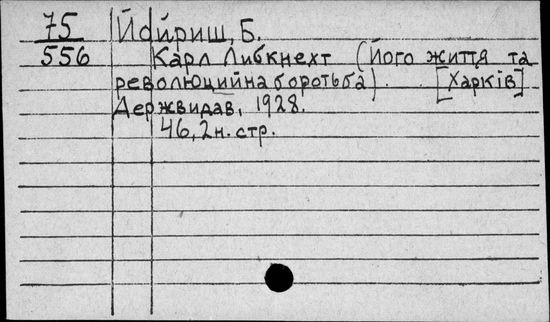 75 Йойриш, Б.
556 Карл Либкнехт (Його життя та
революцийна боротьба). [Харків]
Держвидав, 1928.
46, 2н. стр.